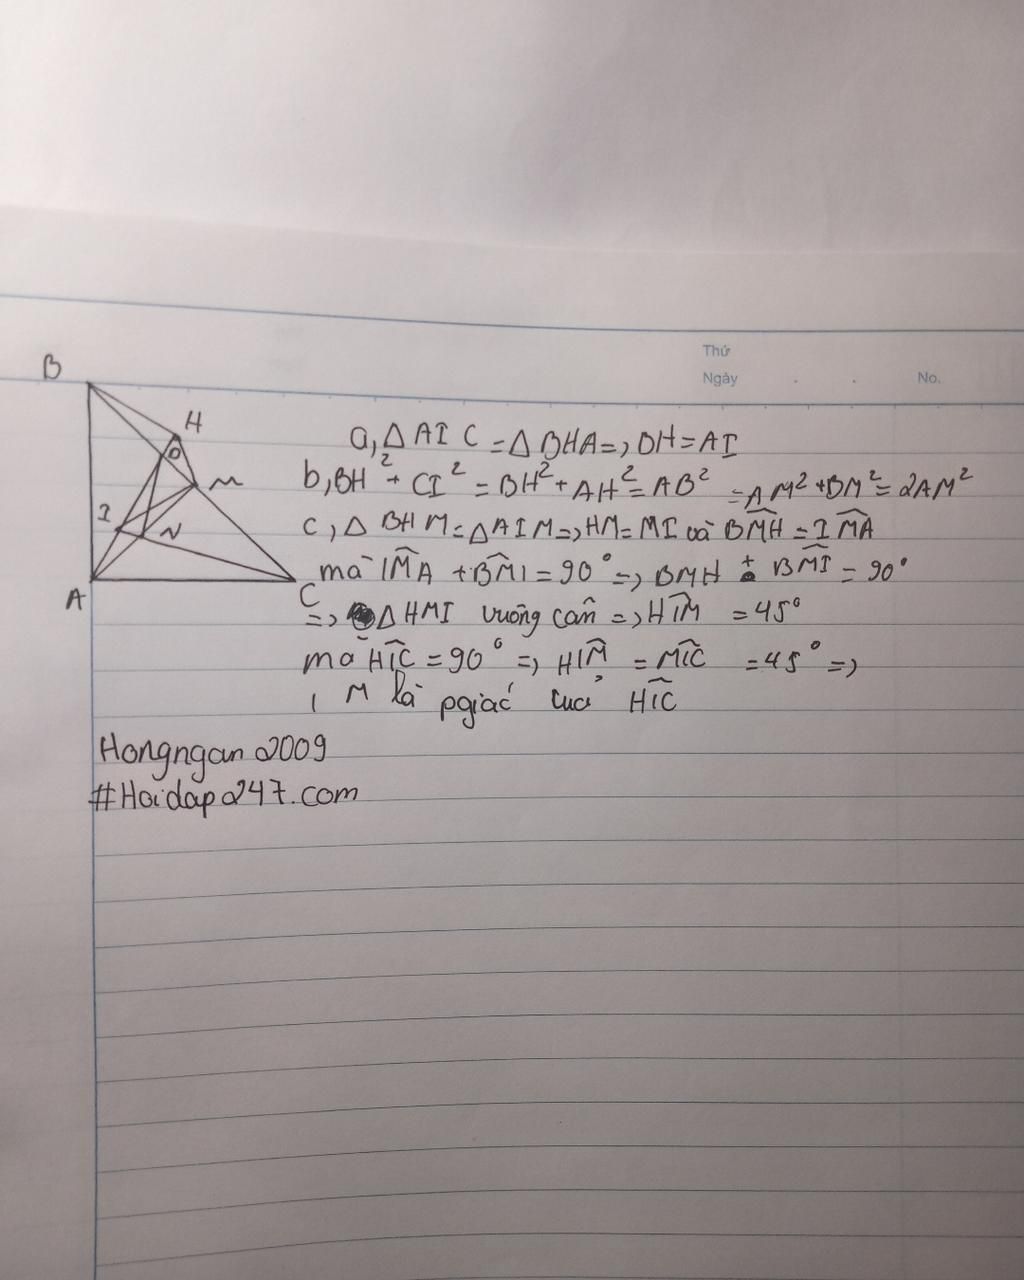 Thứ
Ngày . . No.
B
H
O
M
I
N
A
C
a, △ AI C = △ BHA =, BH = AI
b, BH² + CI² = BH² + AH² = AB² = AM² + BM² = 2AM²
c, △ BHM = △AIM =, HM = MI và B͡MH = I͡MA
mà I͡MA + B͡MI = 90° =, BMH + B͡MI = 90°
=, △HMI vuông cân =, H͡IM = 45°
mà H͡IC = 90° =, H͡IM = M͡IC = 45° =,
I M là pgiác của H͡IC
Hongngan 2009
#Hoidap247.com